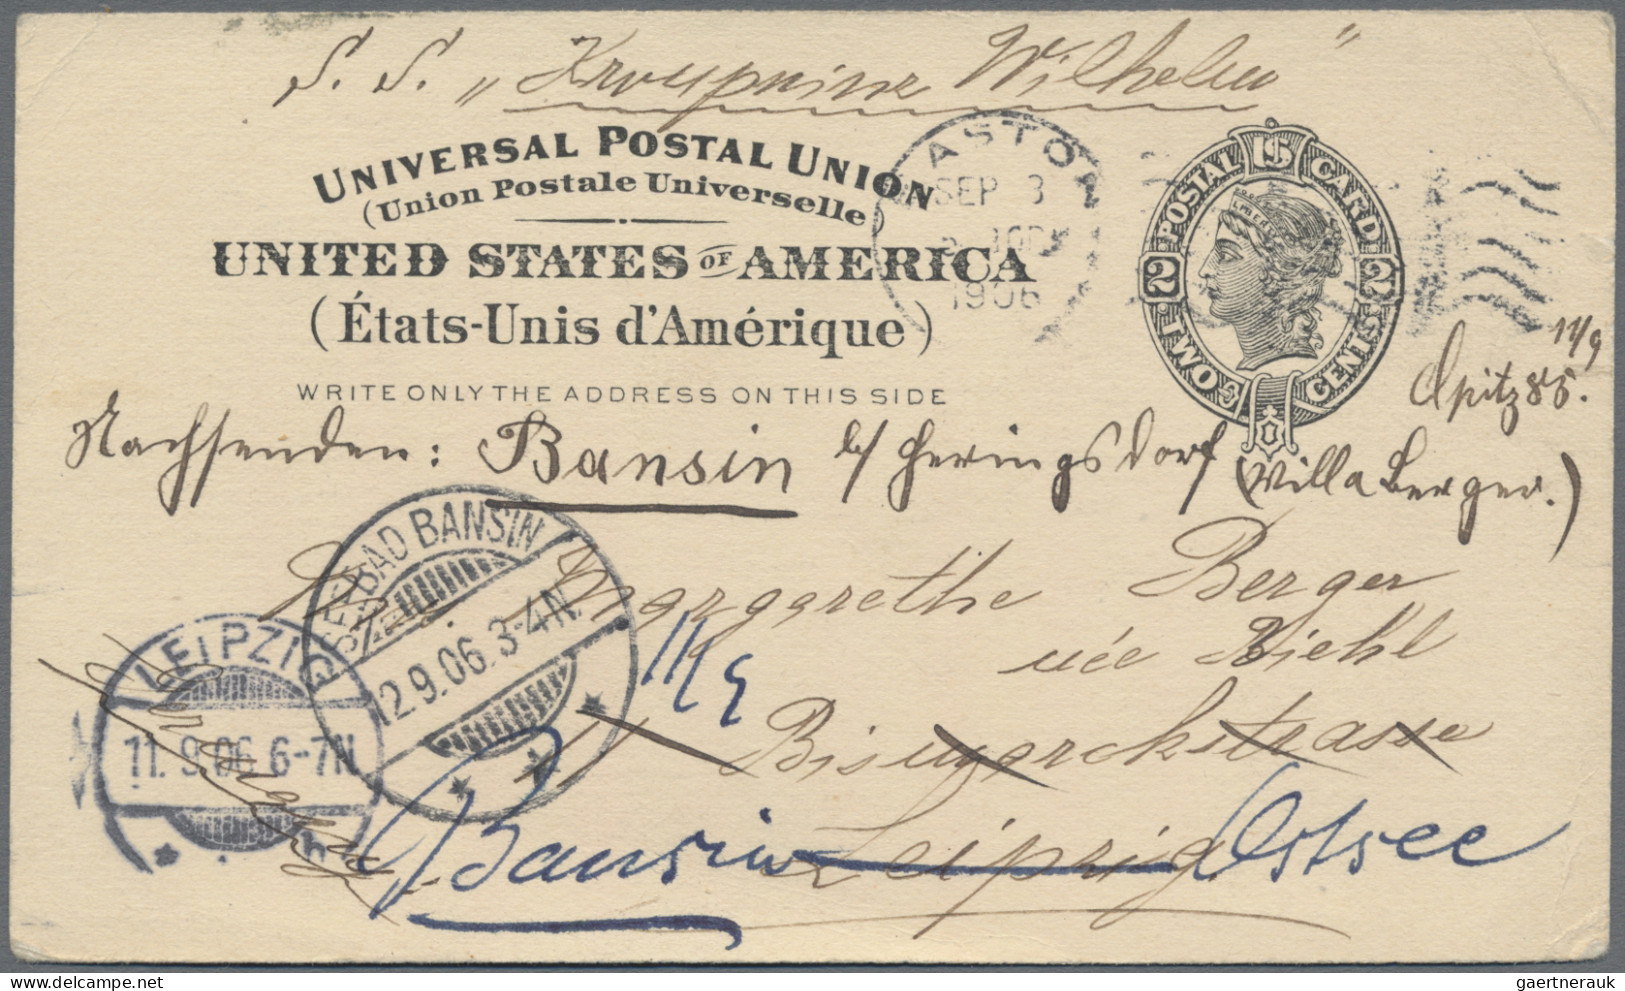 S. S. „Kronprinz Wilhelm"
UNIVERSAL POSTAL UNION
(Union Postale Universelle)
UNITED STATES OF AMERICA
(États-Unis d'Amérique)
WRITE ONLY THE ADDRESS ON THIS SIDE
ASTON
SEP 3
1906
POSTAL CARD
2 2
TWO CENTS
11/9
Opitz 85.
Nachsenden: Bansin b/ Heringsdorf (Villa Berger.)
SEEBAD BANSIN
12.9.06. 3-4N.
LEIPZIG
11.9.06 6-7N
Margarethe Berger
née Biehl
Bismarckstrasse
Leipzig
Bansin Ostsee
Germany
gaertnerauk